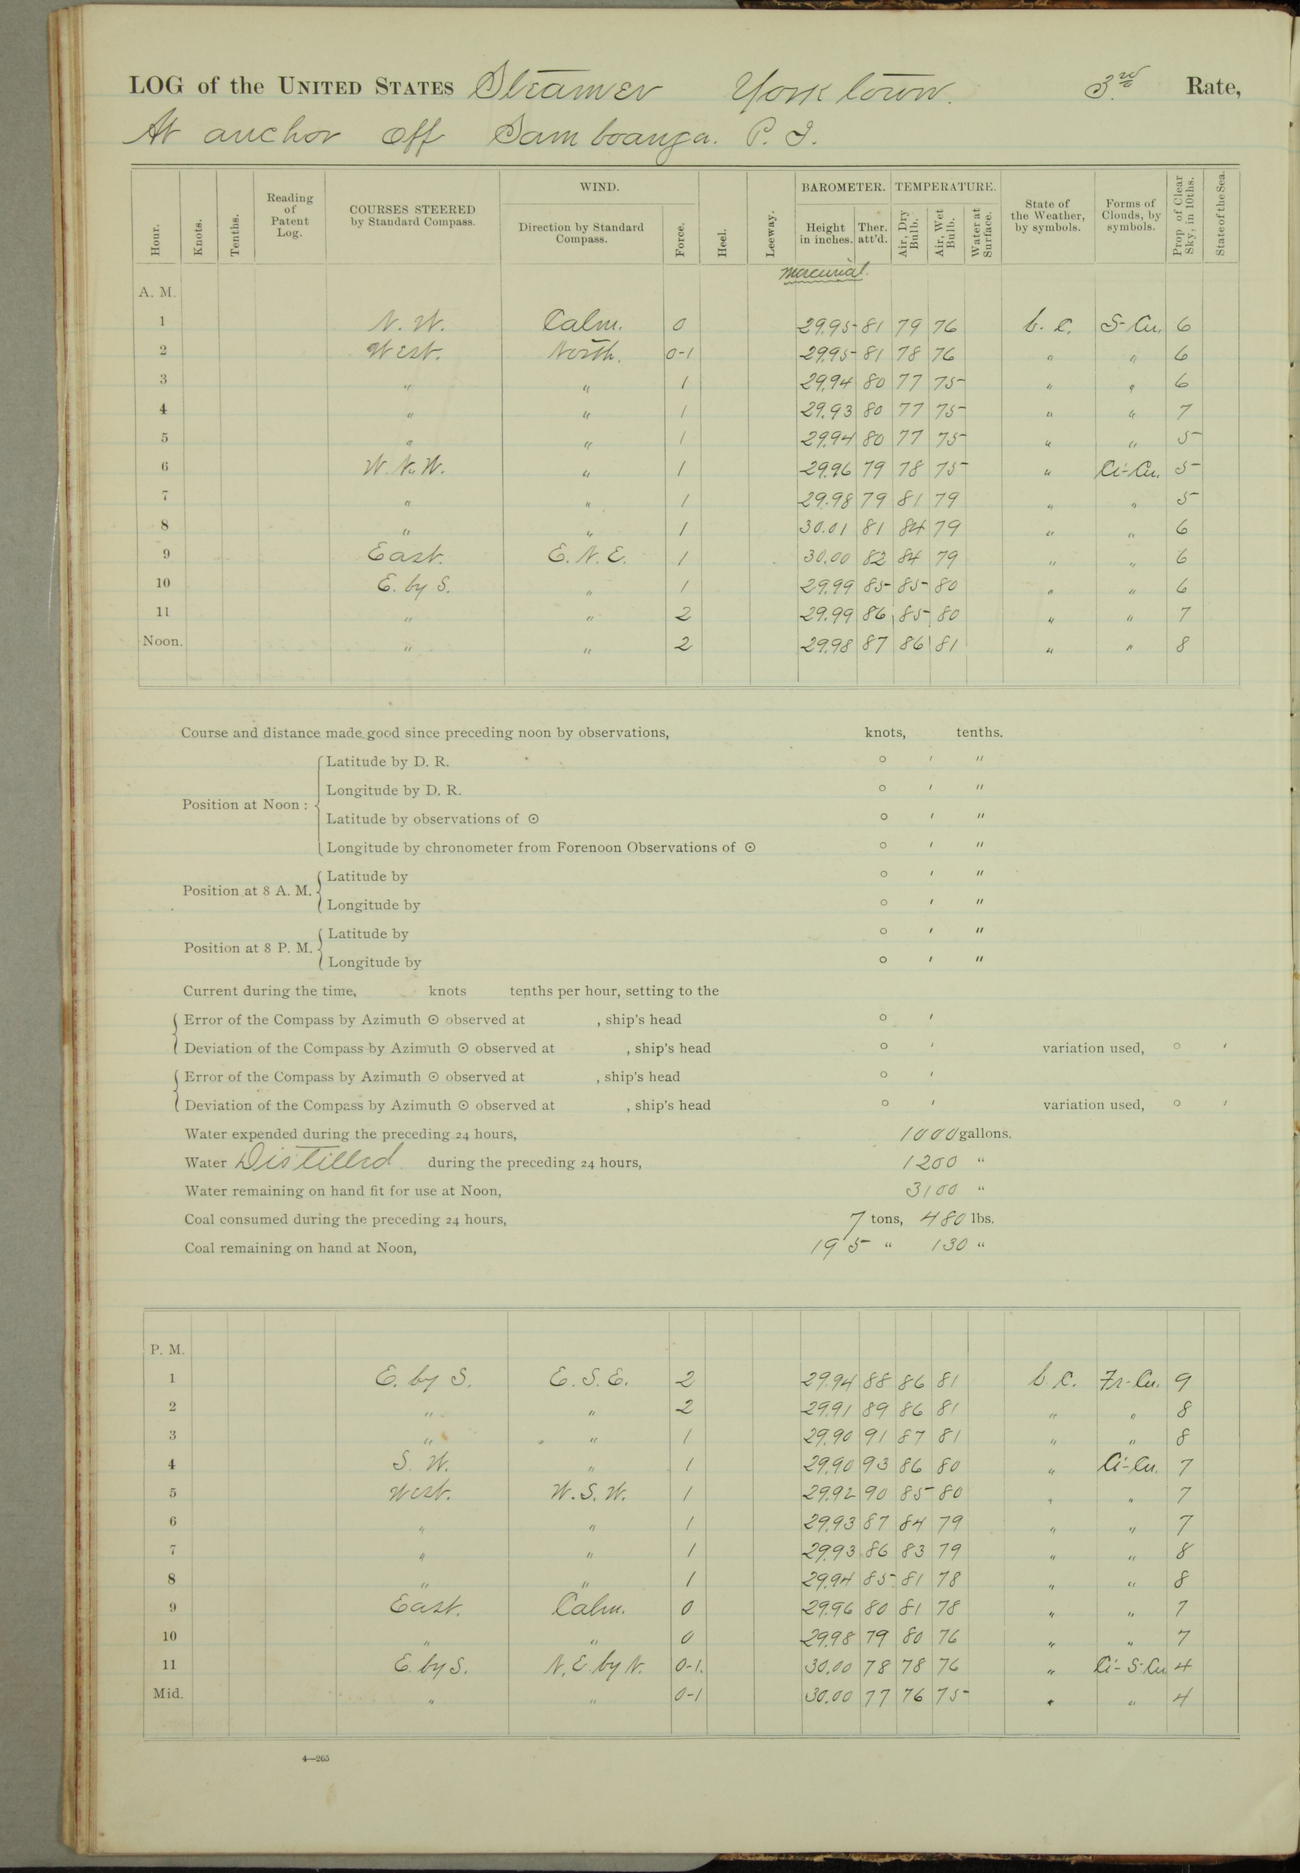 LOG of the UNITED STATES Steamer Yorktown. 3rd Rate,
At anchor off Samboanga. P. I.
Hour. Knots. Tenths. Reading of Patent Log. COURSES STEERED by Standard Compass. WIND. Direction by Standard Compass. Force. Heel. Leeway. BAROMETER. Height in inches. Ther. att'd. TEMPERATURE. Air, Dry Bulb. Air, Wet Bulb. Water at Surface. State of the Weather, by symbols. Forms of Clouds, by symbols. Prop. of Clear Sky, in 10ths. State of the Sea.
mercurial.
A. M.
1 N. W. Calm. 0 29.95 81 79 76 b. c. S-Cu. 6
2 West. North. 0-1 29.95 81 78 76 " " 6
3 " " 1 29.94 80 77 75 " " 6
4 " " 1 29.93 80 77 75 " " 7
5 " " 1 29.94 80 77 75 " " 5
6 W. N. W. " 1 29.96 79 78 75 " Ci-Cu. 5
7 " " 1 29.98 79 81 79 " " 5
8 " " 1 30.01 81 84 79 " " 6
9 East. E. N. E. 1 30.00 82 84 79 " " 6
10 E. by S. " 1 29.99 85 85 80 " " 6
11 " " 2 29.99 86 85 80 " " 7
Noon. " " 2 29.98 87 86 81 " " 8
Course and distance made good since preceding noon by observations, knots, tenths.
Position at Noon :
Latitude by D. R. ° ′ ″
Longitude by D. R. ° ′ ″
Latitude by observations of ☉ ° ′ ″
Longitude by chronometer from Forenoon Observations of ☉ ° ′ ″
Position at 8 A. M.
Latitude by ° ′ ″
Longitude by ° ′ ″
Position at 8 P. M.
Latitude by ° ′ ″
Longitude by ° ′ ″
Current during the time, knots tenths per hour, setting to the
Error of the Compass by Azimuth ☉ observed at , ship's head ° ′
Deviation of the Compass by Azimuth ☉ observed at , ship's head ° ′ variation used, ° ′
Error of the Compass by Azimuth ☉ observed at , ship's head ° ′
Deviation of the Compass by Azimuth ☉ observed at , ship's head ° ′ variation used, ° ′
Water expended during the preceding 24 hours, 1000 gallons.
Water Distilled during the preceding 24 hours, 1200 "
Water remaining on hand fit for use at Noon, 3100 "
Coal consumed during the preceding 24 hours, 7 tons, 480 lbs.
Coal remaining on hand at Noon, 195 " 130 "
P. M.
1 E. by S. E. S. E. 2 29.94 88 86 81 b. c. Fr-Cu. 9
2 " " 2 29.91 89 86 81 " " 8
3 " " 1 29.90 91 87 81 " " 8
4 S. W. " 1 29.90 93 86 80 " Ci-Cu. 7
5 West. W. S. W. 1 29.92 90 85 80 " " 7
6 " " 1 29.93 87 84 79 " " 7
7 " " 1 29.93 86 83 79 " " 8
8 " " 1 29.94 85 81 78 " " 8
9 East. Calm. 0 29.96 80 81 78 " " 7
10 " " 0 29.98 79 80 76 " " 7
11 E. by S. N. E. by N. 0-1. 30.00 78 78 76 " Ci-S-Cu 4
Mid. " " 0-1 30.00 77 76 75 " " 4
4—265